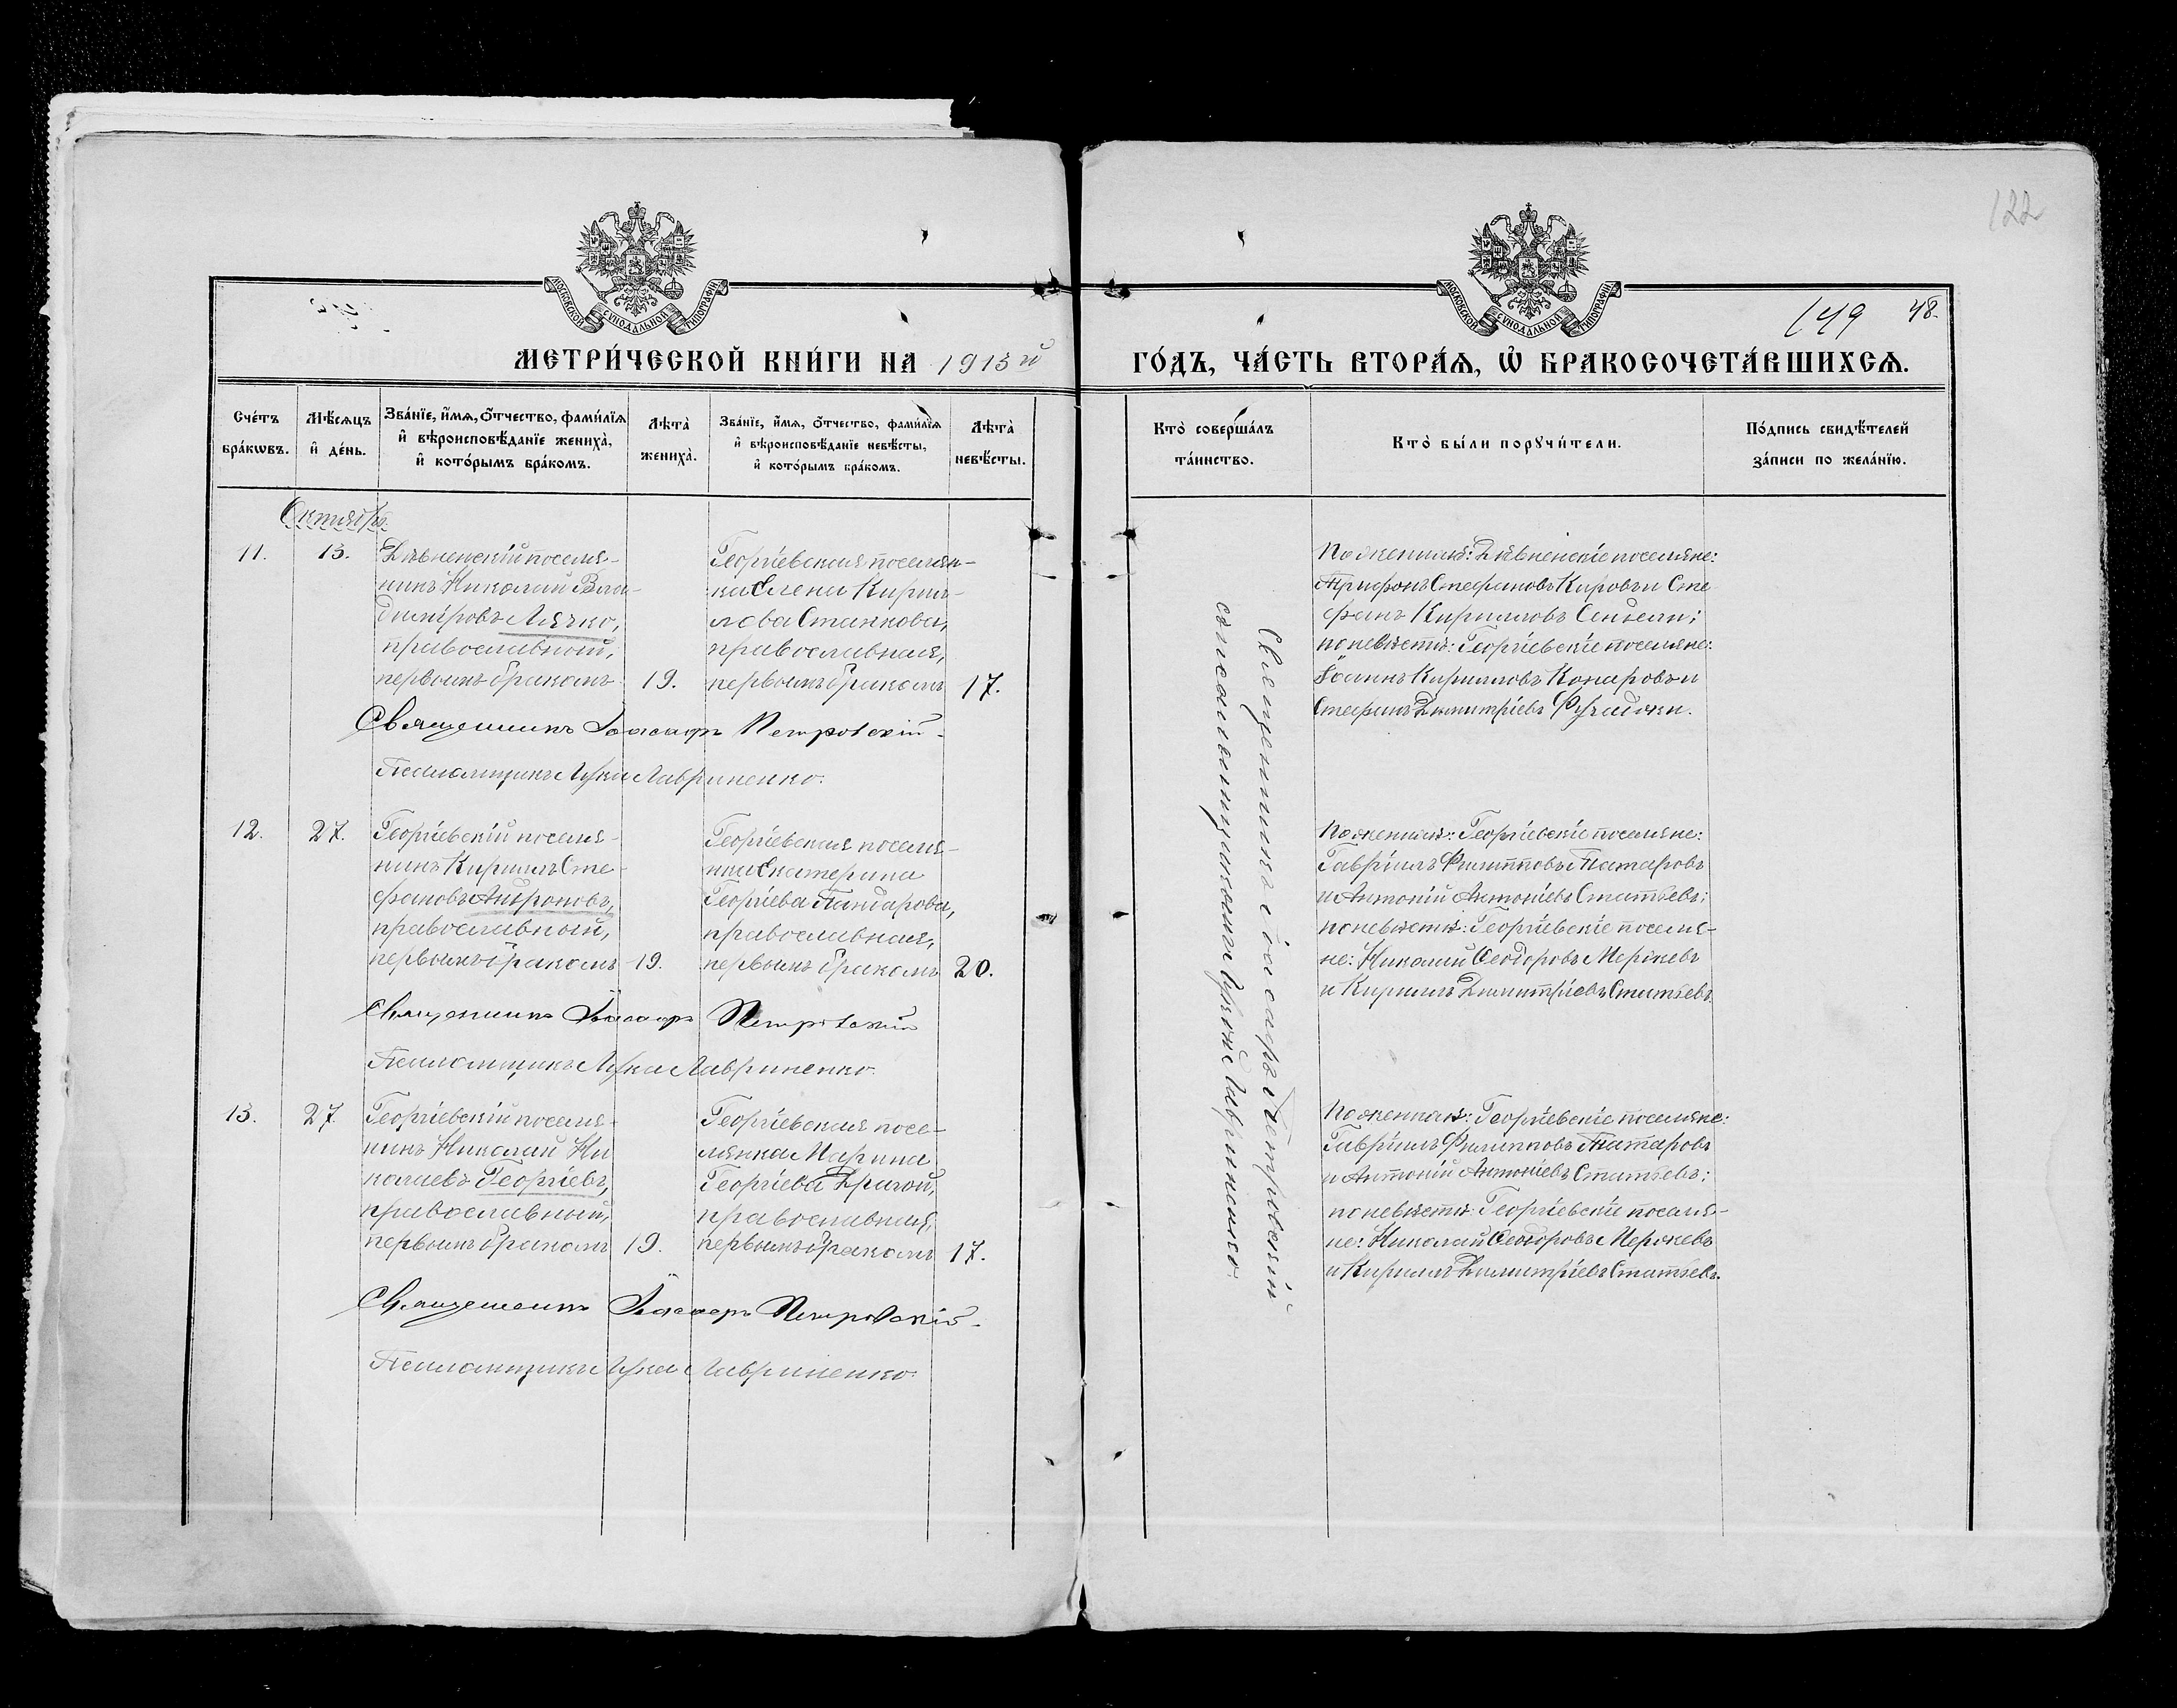 122
149 48.
МОСКОВСКОЙ СѴНОДАЛЬНОЙ ТИПОГРАФІИ
МОСКОВСКОЙ СѴНОДАЛЬНОЙ ТИПОГРАФІИ
МЕТРИ́ЧЕСКОЙ КНИ́ГИ НА 1913 й ГО́ДЪ, ЧА́СТЬ ВТОРА́Ѧ, Ѡ҆ БРАКОСОЧЕТА́ВШИХСѦ.
Сче́тъ
бра́кѡвъ.
Мѣ́сѧцъ
и҆ де́нь.
Зва́нїе, и҆́мѧ, ѻ҆́тчество, фами́лїѧ
и҆ вѣроисповѣ́данїе жениха̀,
и҆ кото́рымъ бра́комъ.
Лѣ́та̀
жениха̀.
Зва́нїе, и҆́мѧ, ѻ҆́тчество, фами́лїѧ
и҆ вѣроисповѣ́данїе невѣ́сты,
и҆ кото́рымъ бра́комъ.
Лѣ́та̀
невѣ́сты.
Кто̀ соверша́лъ
та́инство.
Кто̀ бы́ли порꙋчи́тели.
По́дпись свидѣ́телей
за́писи по жела́нїю.
Октябрь.
11.
13.
Дѣвненскій поселя-
нинъ Николай Вла-
диміровъ Лячко,
православный,
первымъ бракомъ
19.
Георгіевская поселян-
ка Елена Кирил-
лова Станкова,
православная,
первымъ бракомъ
17.
По женихѣ: Дѣвненскіе поселяне:
Трифонъ Стефановъ Кировъ и Сте
фанъ Кирилловъ
по невѣстѣ: Георгіевскіе поселяне:
Іоаннъ Кирилловъ Комаровъ и
Стефанъ Димитріевъ
Священникъ Іоасафъ Петровскій.
Псаломщикъ Лука Лавриненко.
12.
27.
Георгіевскій поселя-
нинъ Кириллъ Сте-
фановъ Андроновъ,
православный,
первымъ бракомъ
19.
Георгіевская поселя-
нка Екатерина
Георгіева Пандарова,
православная,
первымъ бракомъ
20.
По женихѣ: Георгіевскіе поселяне:
Гавріилъ Филипповъ Татаровъ
и Антоній Антоніевъ Статьевъ;
по невѣстѣ: Георгіевскіе поселя-
не: Николай Ѳеодоровъ Мержевъ
и Кириллъ Димитріевъ Статьевъ.
Священникъ Іоасафъ Петровскій
Псаломщикъ Лука Лавриненко.
13.
27.
Георгіевскій поселя-
нинъ Николай Ни
колаевъ Георгіевъ,
православный,
первымъ бракомъ
19.
Георгіевская посе-
лянка Марина
Георгіева Драгой,
православная,
первымъ бракомъ
17.
По женихѣ: Георгіевскіе поселяне:
Гавріилъ Филипповъ Татаровъ
и Антоній Антоніевъ Статьевъ;
по невѣстѣ: Георгіевскіе поселя-
не: Николай Ѳеодоровъ Мержевъ
и Кириллъ Димитріевъ Статьевъ.
Священникъ Іоасафъ Петровскій.
Псаломщикъ Лука Лавриненко.
Священникъ Іоасафъ Петровскій
съ псаломщикомъ Лукою Лавриненко.